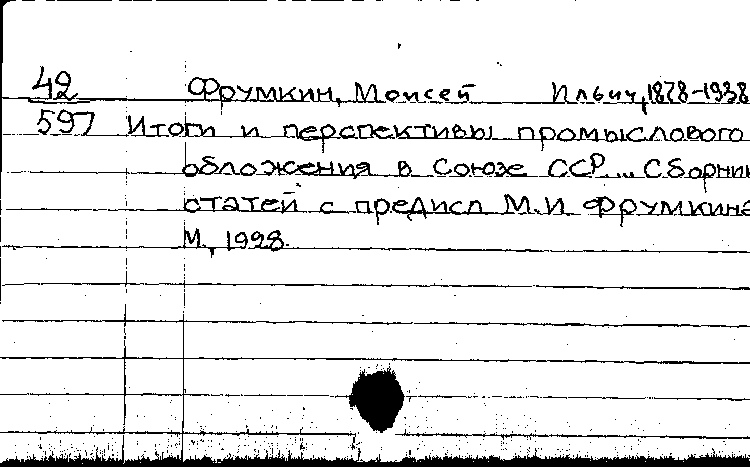 42 Фрумкин, Моисей Ильич, 1878-1938
597 Итоги и перспективы промыслового
обложения в Союзе ССР... Сборник
статей с предисл М.И. Фрумкина
М., 1928.